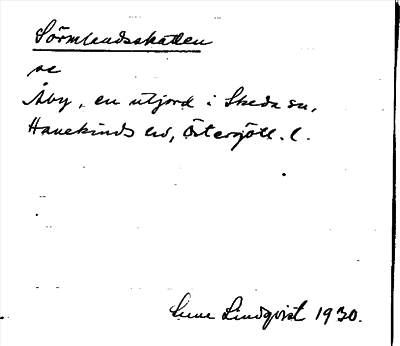 Sörmlandsskatten
se
Åby, en utjord i Skeda sn,
Hanekinds hd, Östergötl. l.
Sune Lindqvist 1930.